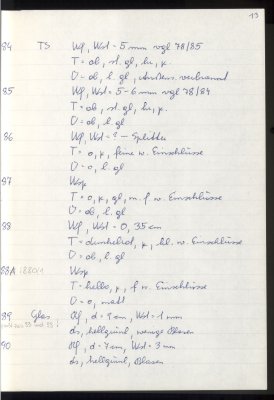 13
84 TS Wf, Wst - 5 mm vgl 78/85
T = ob, st. gl, hr, k.
Ü = ob, l. gl, verbrannt
85 Wf, Wst = 5-6 mm vgl 78/84
T = ob, st. gl, hr, k.
Ü = ob, l. gl
86 Wf, Wst = ? - Splitter
T = o, k, feine w. Einschlüsse
Ü = o, l. gl
87 Wsp
T = o, k, gl, m. f w. Einschlüsse
Ü = ob, l. gl
88 Wf, Wst = 0,35 cm
T = k, kl. w. Einschlüsse
Ü = ob, l. gl
88A 1880/1 Wsp
T = hello, k, f w. Einschlüsse
Ü = o, matt
89 Glas Rf, d = 9 cm, Wst = 1 mm
ds, hellgrün, wenige Blasen
90 Rf, d = 7 cm, Wst = 3 mm
ds, hellgrün, Blasen